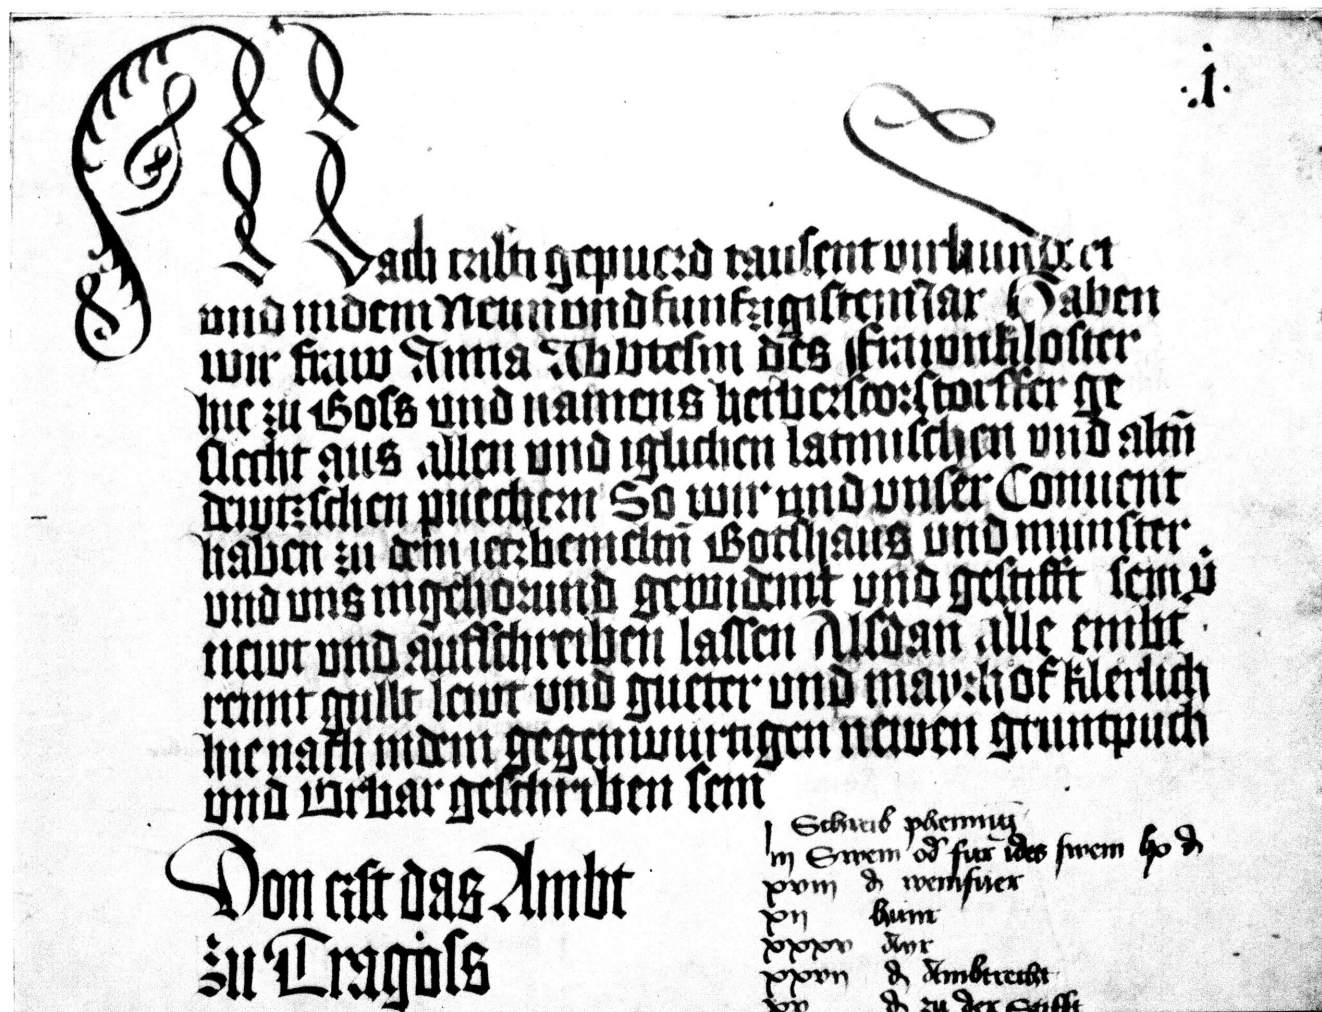 .1.
Nach cristi gepuerd tausent virhundert
und in dem Newn und funfzigistem Jar Haben
wir fraw Anna Abbtesin des frawnkloster
hie zu Goss und namens herberstorstorffer ge
slecht aus allen und iglichen latinischen und altn̄
dewtzschen puechern So wir und unser Convent
haben zu dem ietzbeneltn̄ Gotshaus und munster
und uns ingehorund gewidemt und gestifft sein v̄
newt und aufschreiben lassen Alsdan alle embt
rennt gullt lewt und gueter und mayrhof klerlich
hie nach in dem gegenwurtigen newen gruntpuch
und Urbar geschriben sein
Von erst das Ambt
zu Tragöss
Schreib phennig
iii Swein od fur ides swein
xviii ₰ weinfuer
xii huenr
xxxv Ayr
xxvii ₰ Ambtrecht
xx ₰ zu der Stifft